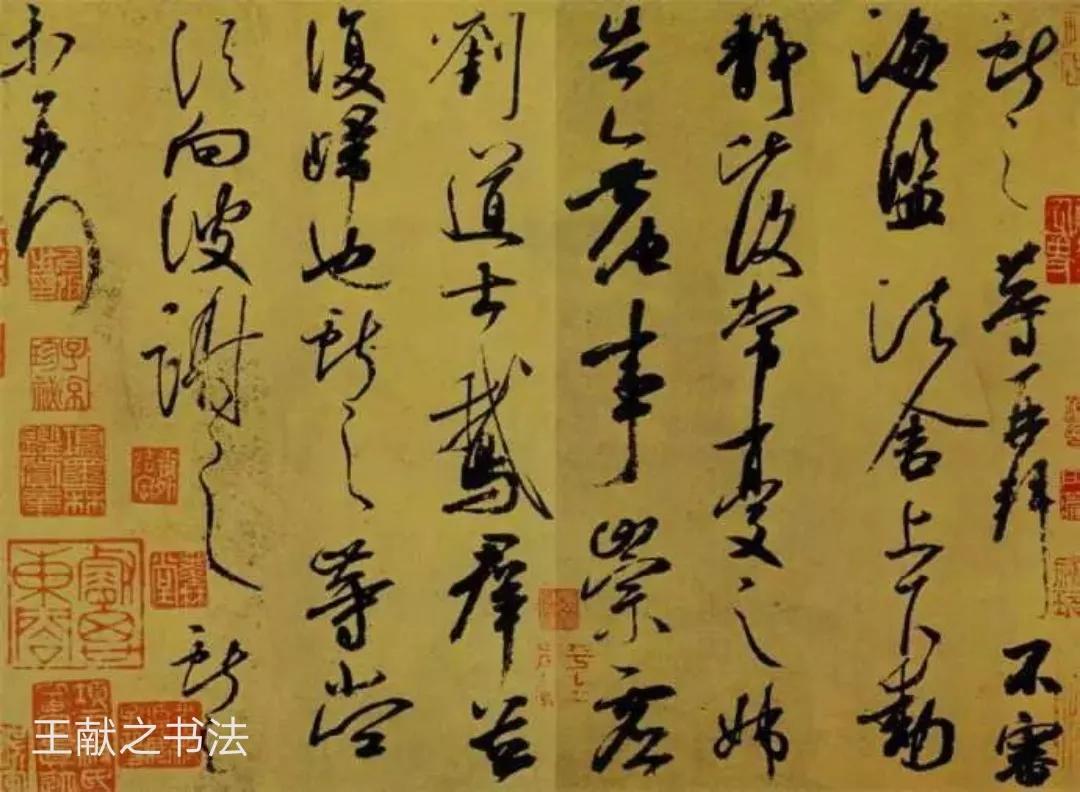 獻之等再拜不審
海鹽諸舍上下動
靜比復常憂之姊
告無他事崇虛
劉道士鵝群並
復歸也獻之等當
須向彼謝之獻之
等再拜
王献之书法